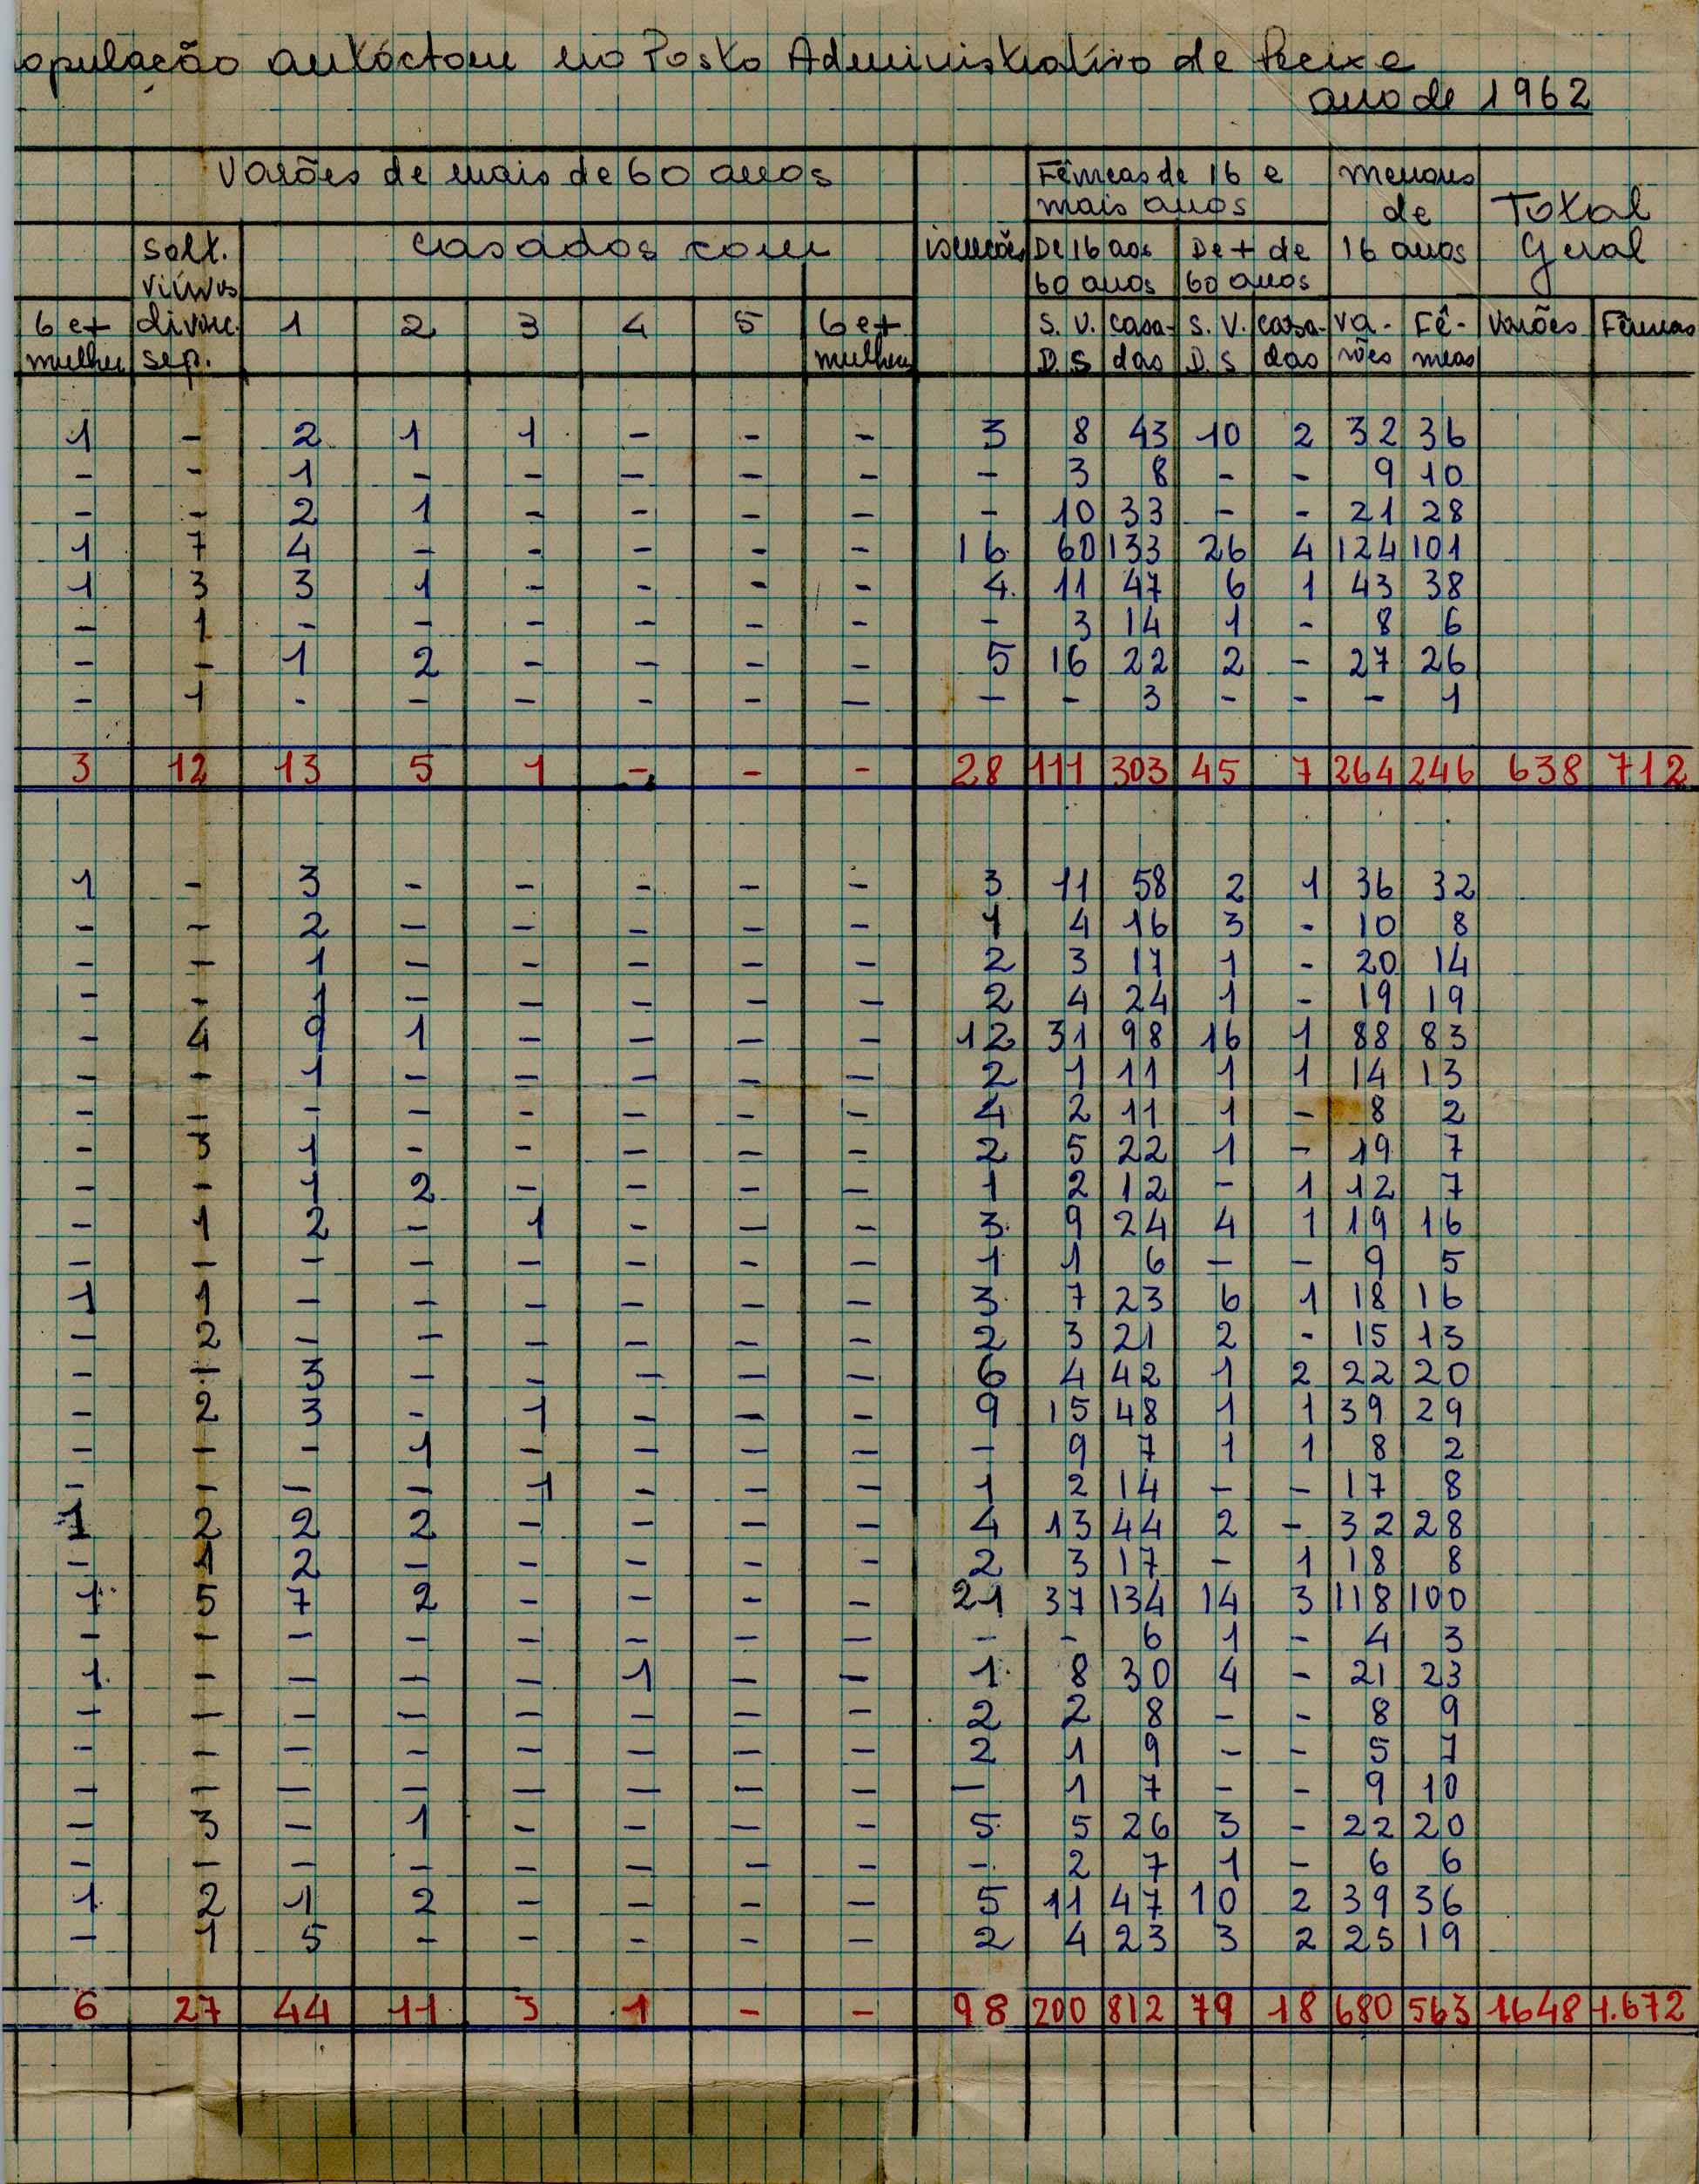 opulação autóctone no Posto Administrativo de
ano de 1962
Varões de mais de 60 anos Fêmeas de 16 e menores
mais anos de Total
solt. casados com isenções De 16 aos De + de 16 anos Geral
viúvos 60 anos 60 anos
6 e + divorc. 1 2 3 4 5 6 e + S. V. casa- S. V. casa- va- Fê- Varões Fêmeas
mulher sep. mulheres D. S das D. S das rões meas
1 - 2 1 1 - - - 3 8 43 10 2 32 36
- - 1 - - - - - - 3 8 - - 9 10
- - 2 1 - - - - - 10 33 - - 21 28
1 7 4 - - - - - 16 60 133 26 4 124 101
1 3 3 1 - - - - 4 11 47 6 1 43 38
- 1 - - - - - - - 3 14 1 - 8 6
- - 1 2 - - - - 5 16 22 2 - 27 26
- 1 - - - - - - - - 3 - - - 1
3 12 13 5 1 - - - 28 111 303 45 7 264 246 638 712
1 - 3 - - - - - 3 11 58 2 1 36 32
- - 2 - - - - - 1 4 16 3 - 10 8
- - 1 - - - - - 2 3 17 1 - 20 14
- - 1 - - - - - 2 4 24 1 - 19 19
- 4 9 1 - - - - 12 31 98 16 1 88 83
- - 1 - - - - - 2 1 11 1 1 14 13
- - - - - - - - 4 2 11 1 - 8 2
- 3 1 - - - - - 2 5 22 1 - 19 7
- - 1 2 - - - - 1 2 12 - 1 12 7
- 1 2 - 1 - - - 3 9 24 4 1 19 16
- - - - - - - - 1 1 6 - - 9 5
1 1 - - - - - - 3 7 23 6 1 18 16
- 2 - - - - - - 2 3 21 2 - 15 13
- - 3 - - - - - 6 4 42 1 2 22 20
- 2 3 - 1 - - - 9 15 48 1 1 39 29
- - - 1 - - - - - 9 7 1 1 8 2
- - - - 1 - - - 1 2 14 - - 17 8
1 2 2 2 - - - - 4 13 44 2 - 32 28
- 1 2 - - - - - 2 3 17 - 1 18 8
1 5 7 2 - - - - 21 37 134 14 3 118 100
- - - - - - - - - - 6 1 - 4 3
1 - - - - 1 - - 1 8 30 4 - 21 23
- - - - - - - - 2 2 8 - - 8 9
- - - - - - - - 2 1 9 - - 5 7
- - - - - - - - - 1 7 - - 9 10
- 3 - 1 - - - - 5 5 26 3 - 22 20
- - - - - - - - - 2 7 1 - 6 6
1 2 1 2 - - - - 5 11 47 10 2 39 36
- 1 5 - - - - - 2 4 23 3 2 25 19
6 27 44 11 3 1 - - 98 200 812 79 18 680 563 1648 1.672